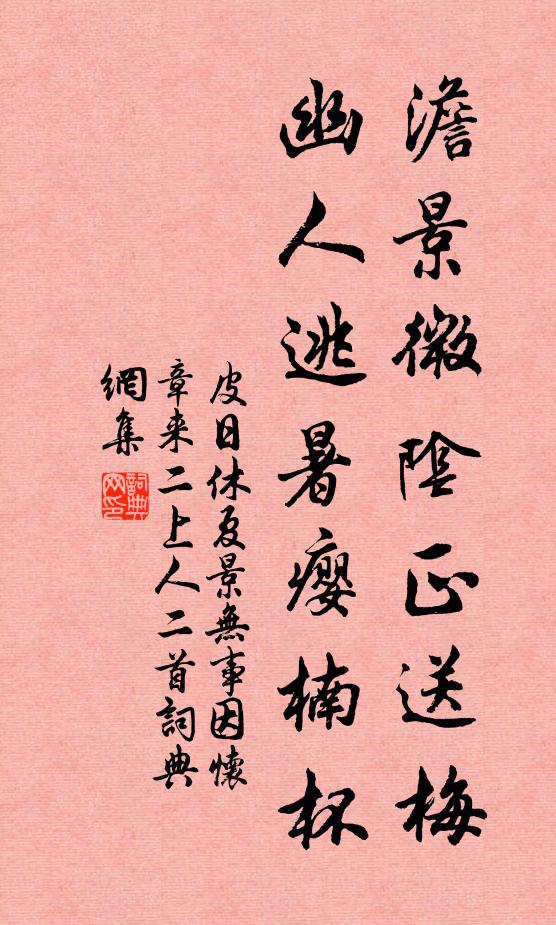 澹景微陰正送梅
幽人逃暑癭楠杯
皮日休夏景無事因懷
章来二上人二首詞典
網集
詞典網印